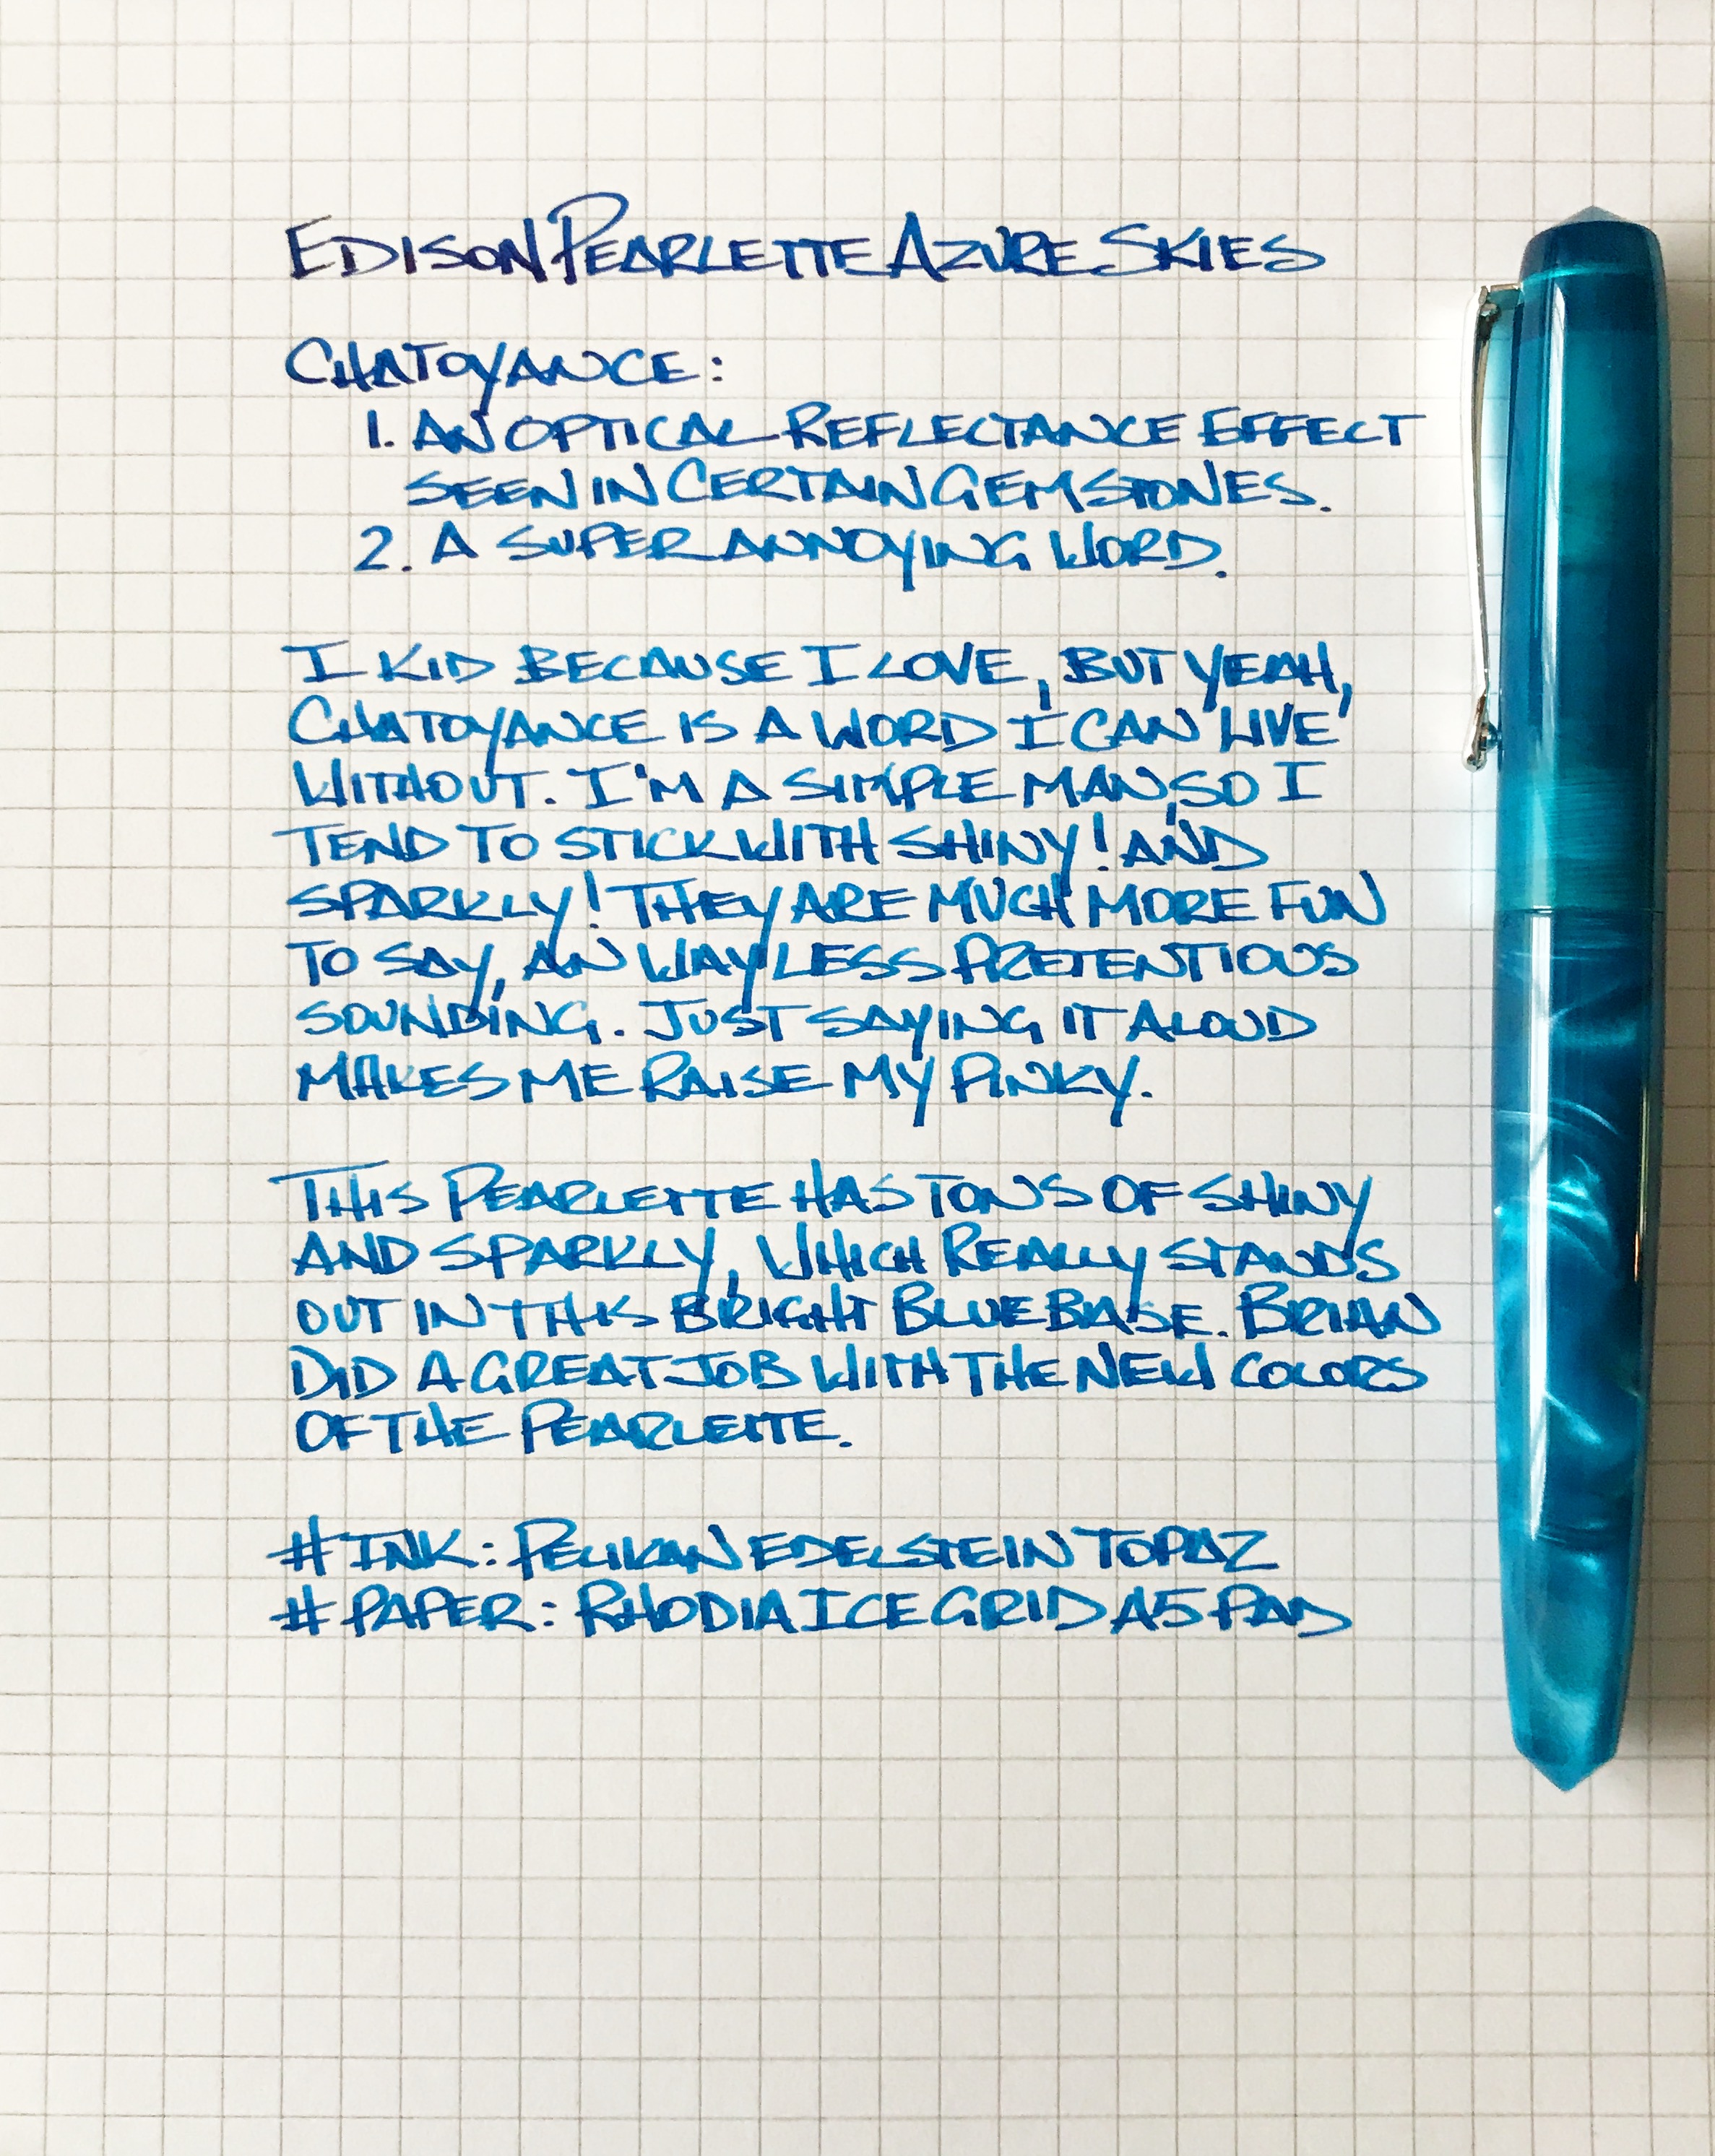 EDISON PEARLETTE AZURE SKIES
CHATOYANCE:
1. AN OPTICAL REFLECTANCE EFFECT
SEEN IN CERTAIN GEMSTONES.
2. A SUPER ANNOYING WORD.
I KID BECAUSE I LOVE, BUT YEAH,
CHATOYANCE IS A WORD I CAN LIVE
WITHOUT. I'M A SIMPLE MAN, SO I
TEND TO STICK WITH SHINY! AND
SPARKLY! THEY ARE MUCH MORE FUN
TO SAY, AN WAY LESS PRETENTIOUS
SOUNDING. JUST SAYING IT ALOUD
MAKES ME RAISE MY PINKY.
THIS PEARLETTE HAS TONS OF SHINY
AND SPARKLY, WHICH REALLY STANDS
OUT IN THIS BRIGHT BLUE BASE. BRIAN
DID A GREAT JOB WITH THE NEW COLORS
OF THE PEARLETTE.
#INK: PELIKAN EDELSTEIN TOPAZ
#PAPER: RHODIA ICE GRID A5 PAD